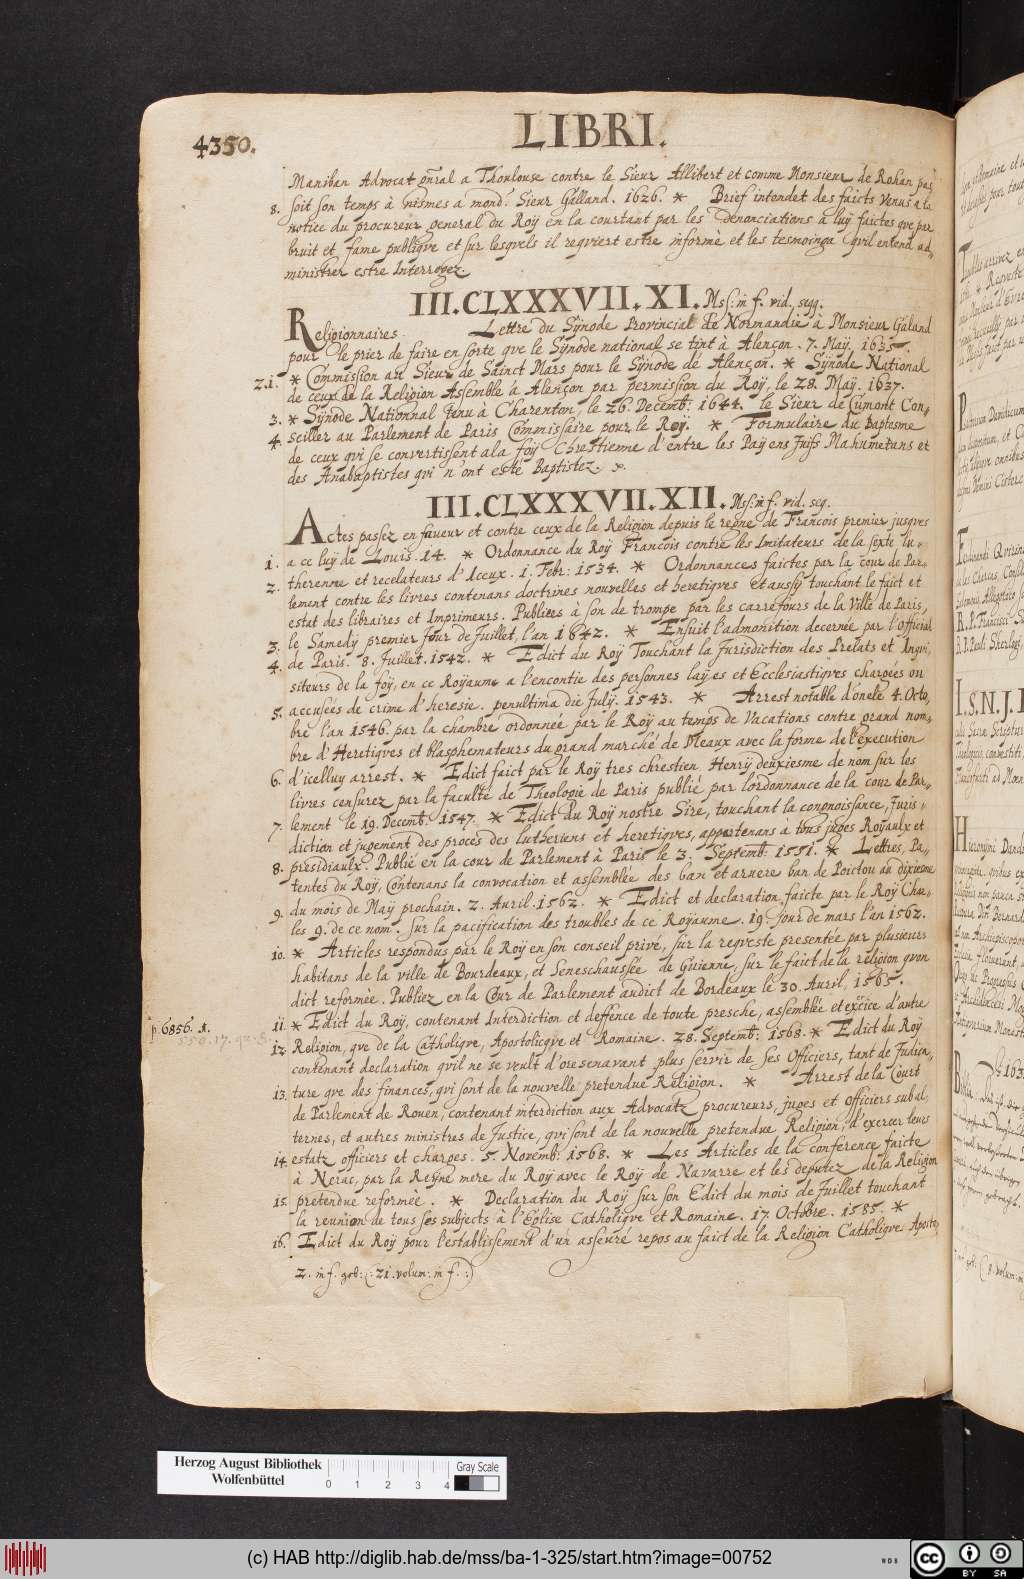 4350. LIBRI.
Maniban Advocat gñral a Thoulouse contre le Sieur Allibert et comme Monsieur de Rohan pas
8. soit son temps à nismes a mond. Sieur Galland. 1626. * Brief intendet des faicts Venus a la
notice du procureur general du Roy en la courtant par les denonciations a luy faictes qve par
bruit et fame publiqve et sur lesqvels il reqviert estre informè et les tesmoings qvil entend ad,
ministrer estre Interrogez.
III.CLXXXVII.XI. Mss: in f. vid. seqq.
Religionnaires. Lettre du Synode Provincial de Normandie à Monsieur Galand
pour le prier de faire en sorte qve le Synode national se tint à Alençon. 7. Maÿ. 1635.
2.1. * Commission au Sieur de Sainct Mars pour le Synode de Alençon. * Synode National
de ceux de la Religion Assemble a Alençon par permission du Roy, le 28. Maÿ. 1637.
3. * Synode Nationnal tenu à Charenton, le 26. Decemb: 1644. le Sieur de Cumont Con,
4. seiller au Parlement de Paris Commissaire pour le Roy. * Formulaire du Baptesme
de ceux qvi se convertissent a la foÿ Chrestienne d'entre les Paÿens Juifs Mahumetans et
des Anabaptistes qvi n'ont esté Baptistez.
III.CLXXXVII.XII. Mss: in f. vid. seq.
Actes passez en faueur et contre ceux de la Religion depuis le regne de Francois premier jusqves
1. a ce luy de Louis. 14. * Ordonnance du Roÿ Francois contre les Imitateurs de la secte lu,
2. therenne et recelateurs d'Iceux. 1. Febr: 1534. * Ordonnances faictes par la cour de Par,
lement contre les livres contenans doctrines nouvelles et heretiqves et aussy touchant le faict et
estat des libraires et Imprimeurs. Publiees à son de trompe par les carrefours de la Ville de Paris,
3. le Samedÿ premier jour de Juillet, l'an 1642. * Ensuit l'admonition decernée par l'official
4. de Paris. 8. Juillet. 1542. * Edict du Roÿ Touchant la Jurisdiction des Prelats et Inqvi,
siteurs de la foÿ, en ce Roÿaume a l'encontie des personnes layes et Ecclesiastiqves chargées ou
5. accusées de crime d'heresie. penultima die Julÿ. 1543. * Arrest notable donele 4. Octo,
bre l'an 1546. par la chambre ordonnee par le Roÿ au temps de Vacations contre grand nom,
bre d'Heretiqves et blasphemateurs du grand marché de Meaux avec la forme de l'execution
6. d'icelluy arrest. * Edict faict par le Roÿ tres chrestien Henrÿ deuxiesme de nom sur les
livres censurez par la faculte de Theologie de Paris publié par l'ordonnance de la cour de Par,
7. lement le 19. Decemb. 1547. * Edict du Roy nostre Sire, touchant la congnoissance, Juris,
diction et jugement des proces des lutheriens et heretiqves, appartenans à tous juges Royaulx et
8. presidiaulx. Publié en la cour de Parlement à Paris le 3. Septemb: 1551. * Lettres, Pa,
tentes du Roÿ, Contenans la convocation et assemblée des ban et arriere ban de Poictou au dixiesme
9. du mois de Maÿ prochain. 2. Auril. 1562. * Edict et declaration faicte par le Roÿ Char,
les 9. de ce nom. Sur la pacification des troubles de ce Roÿaume. 19. jour de mars l'an 1562.
10. * Articles respondus par le Roÿ en son conseil privé, sur la reqveste presentée par plusieurs
habitans de la ville de Bourdeaux, et Seneschaussée de Guienne, sur le faict de la religion qvon
dict reformèe. Publiez en la Cour de Parlement audict de Bordeaux le 30. Auril. 1565.
p 6856. A.
11. * Edict du Roÿ, contenant Interdiction et deffence de toute presche, assemblée et excice d'autre
12. Religion, qve de la Catholiqve, Apostolicqve et Romaine. 28. Septemb: 1568. * Edict du Roÿ
contenant declaration qvil ne se veult d'oresenavant plus servir de ses Officiers, tant de Judica,
13. ture qve des finances, qvi sont de la nouvelle pretendue Religion. * Arrest de la Court
de Parlement de Rouen, contenant interdiction aux Advocatz procureurs, juges et officiers subal,
ternes, et autres ministres de Justice, qvi sont de la nouvelle pretendue Religion, d'exercer leurs
14. estatz officiers et charges. 5. Novemb: 1568. * Les Articles de la conference faicte
à Nerac, par la Reyne mere du Roÿ avec le Roÿ de Navarre et les deputez de la Religion
15. pretendue reformée. * Declaration du Roÿ sur son Edict du mois de Juillet touchant
la reunion de tous ses subjects à l'Eglise Catholiqve et Romaine. 17. Octobre. 1585. *
16. Edict du Roÿ pour l'establissement d'un asseuré repos au faict de la Religion Catholiqve Aposto,
2. in f. geb: (: 21. volum: in f. :)
Herzog August Bibliothek
Wolfenbüttel
0 1 2 3 4
Gray Scale
(c) HAB http://diglib.hab.de/mss/ba-1-325/start.htm?image=00752
WDB
cc BY SA